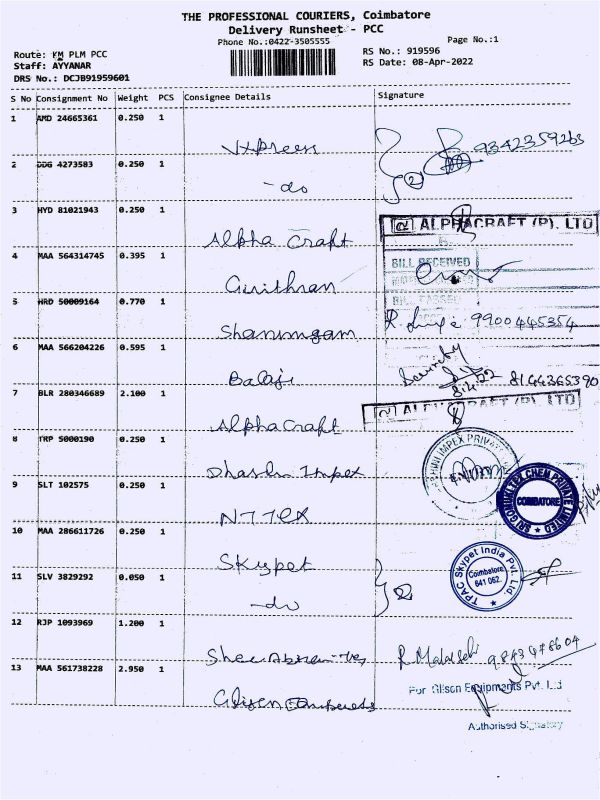 THE PROFESSIONAL COURIERS, Coimbatore
Delivery Runsheet - PCC
Phone No.:0422-3505555
Page No.:1
Route: KM PLM PCC
RS No.: 919596
Staff: AYYANAR
RS Date: 08-Apr-2022
DRS No.: DCJB91959601
S No Consignment No Weight PCS Consignee Details Signature
1 AMD 24665361 0.250 1
Express 9342359263
2 DDG 4273583 0.250 1
-do 2
3 HYD 81021943 0.250 1
Alpha Craft ALPHACRAFT (P). LTD
4 MAA 564314745 0.395 1
BILL RECEIVED
Girithran
BILL PASSED
5 HRD 50009164 0.770 1
Shanmugam 9900445354
6 MAA 566204226 0.595 1
Balaji 8.4.22 8144365390
7 BLR 280346689 2.100 1
Alpha Craft ALPHACRAFT (P). LTD
8 TRP 5000190 0.250 1
Dhashi Impex IMPEX PRIVATE
9 SLT 102575 0.250 1
NTTEX COIMBATORE
10 MAA 286611726 0.250 1
Skypet
TPAC Skypet India Pvt. Ltd.
Coimbatore
641 062.
11 SLV 3829292 0.050 1
-do 2
12 RJP 1093969 1.200 1
9843476604
13 MAA 561738228 2.950 1
For Glisen Equipments Pvt. Ltd
Glisen
Authorised Signatory